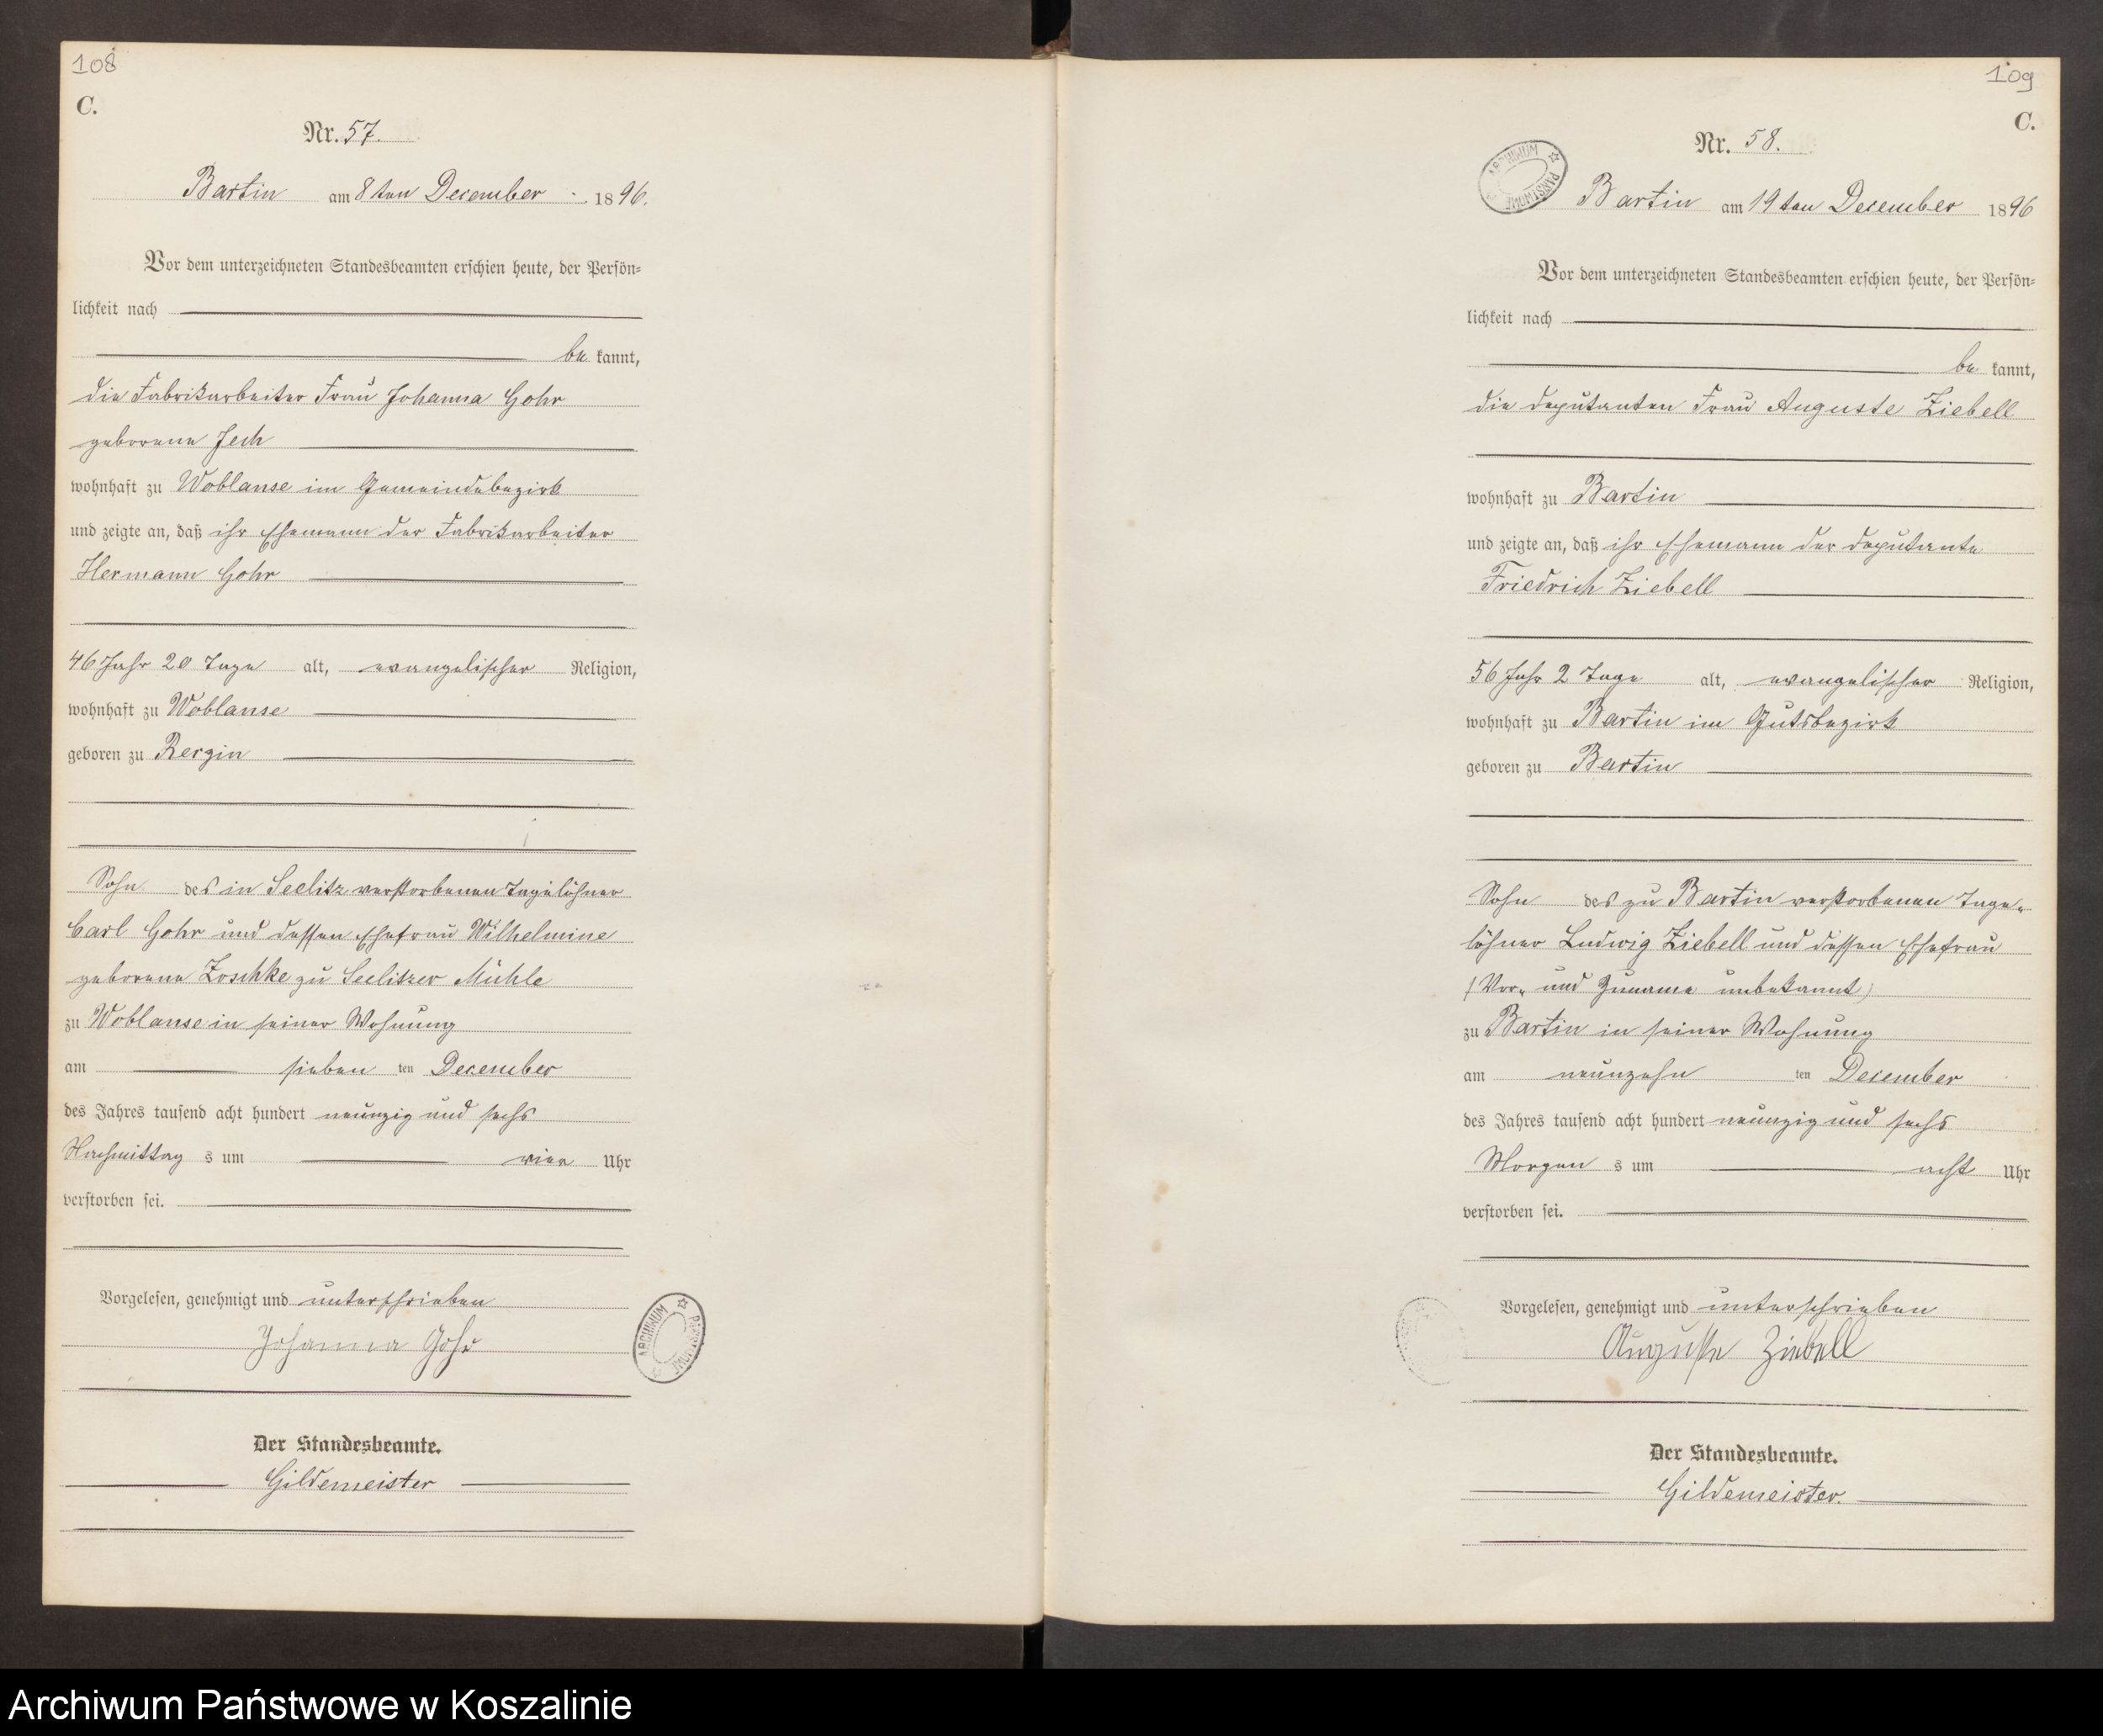 108
C.
Nr. 57.
Bartin am 8ten December 1896.
Vor dem unterzeichneten Standesbeamten erschien heute, der Persön=
lichkeit nach
be kannt,
die Fabrikarbeiter Frau Johanna Gohr
geborene Jech
wohnhaft zu Woblanse im Gemeindebezirk
und zeigte an, daß ihr Ehemann der Fabrikarbeiter
Hermann Gohr
46 Jahr 20 Tage alt, evangelischer Religion,
wohnhaft zu Woblanse
geboren zu
Sohn des in Seelitz verstorbenen Tagelöhner
Carl Gohr und dessen Ehefrau Wilhelmine
geborene Zoschke zu Seelitzer Mühle
zu Woblanse in seiner Wohnung
am sieben ten December
des Jahres tausend acht hundert neunzig und sechs
Nachmittag s um vier Uhr
verstorben sei.
Vorgelesen, genehmigt und unterschrieben
Johanna Gohr
Der Standesbeamte.
Gildemeister
ARCHIWUM PAŃSTWOWE
109
C.
Nr. 58.
ARCHIWUM PAŃSTWOWE
Bartin am 19ten December 1896
Vor dem unterzeichneten Standesbeamten erschien heute, der Persön=
lichkeit nach
be kannt,
die deputanten Frau Auguste Ziebell
wohnhaft zu Bartin
und zeigte an, daß ihr Ehemann der deputante
Friedrich Ziebell
56 Jahr 2 Tage alt, evangelischer Religion,
wohnhaft zu Bartin im Gutsbezirk
geboren zu Bartin
Sohn des zu Bartin verstorbenen Tage„
löhner Ludwig Ziebell und dessen Ehefrau
(Vor„ und Zuname unbekannt)
zu Bartin in seiner Wohnung
am neunzehn ten December
des Jahres tausend acht hundert neunzig und sechs
Morgen s um acht Uhr
verstorben sei.
Vorgelesen, genehmigt und unterschrieben
Auguste Ziebell
Der Standesbeamte.
Gildemeister.
Archiwum Państwowe w Koszalinie